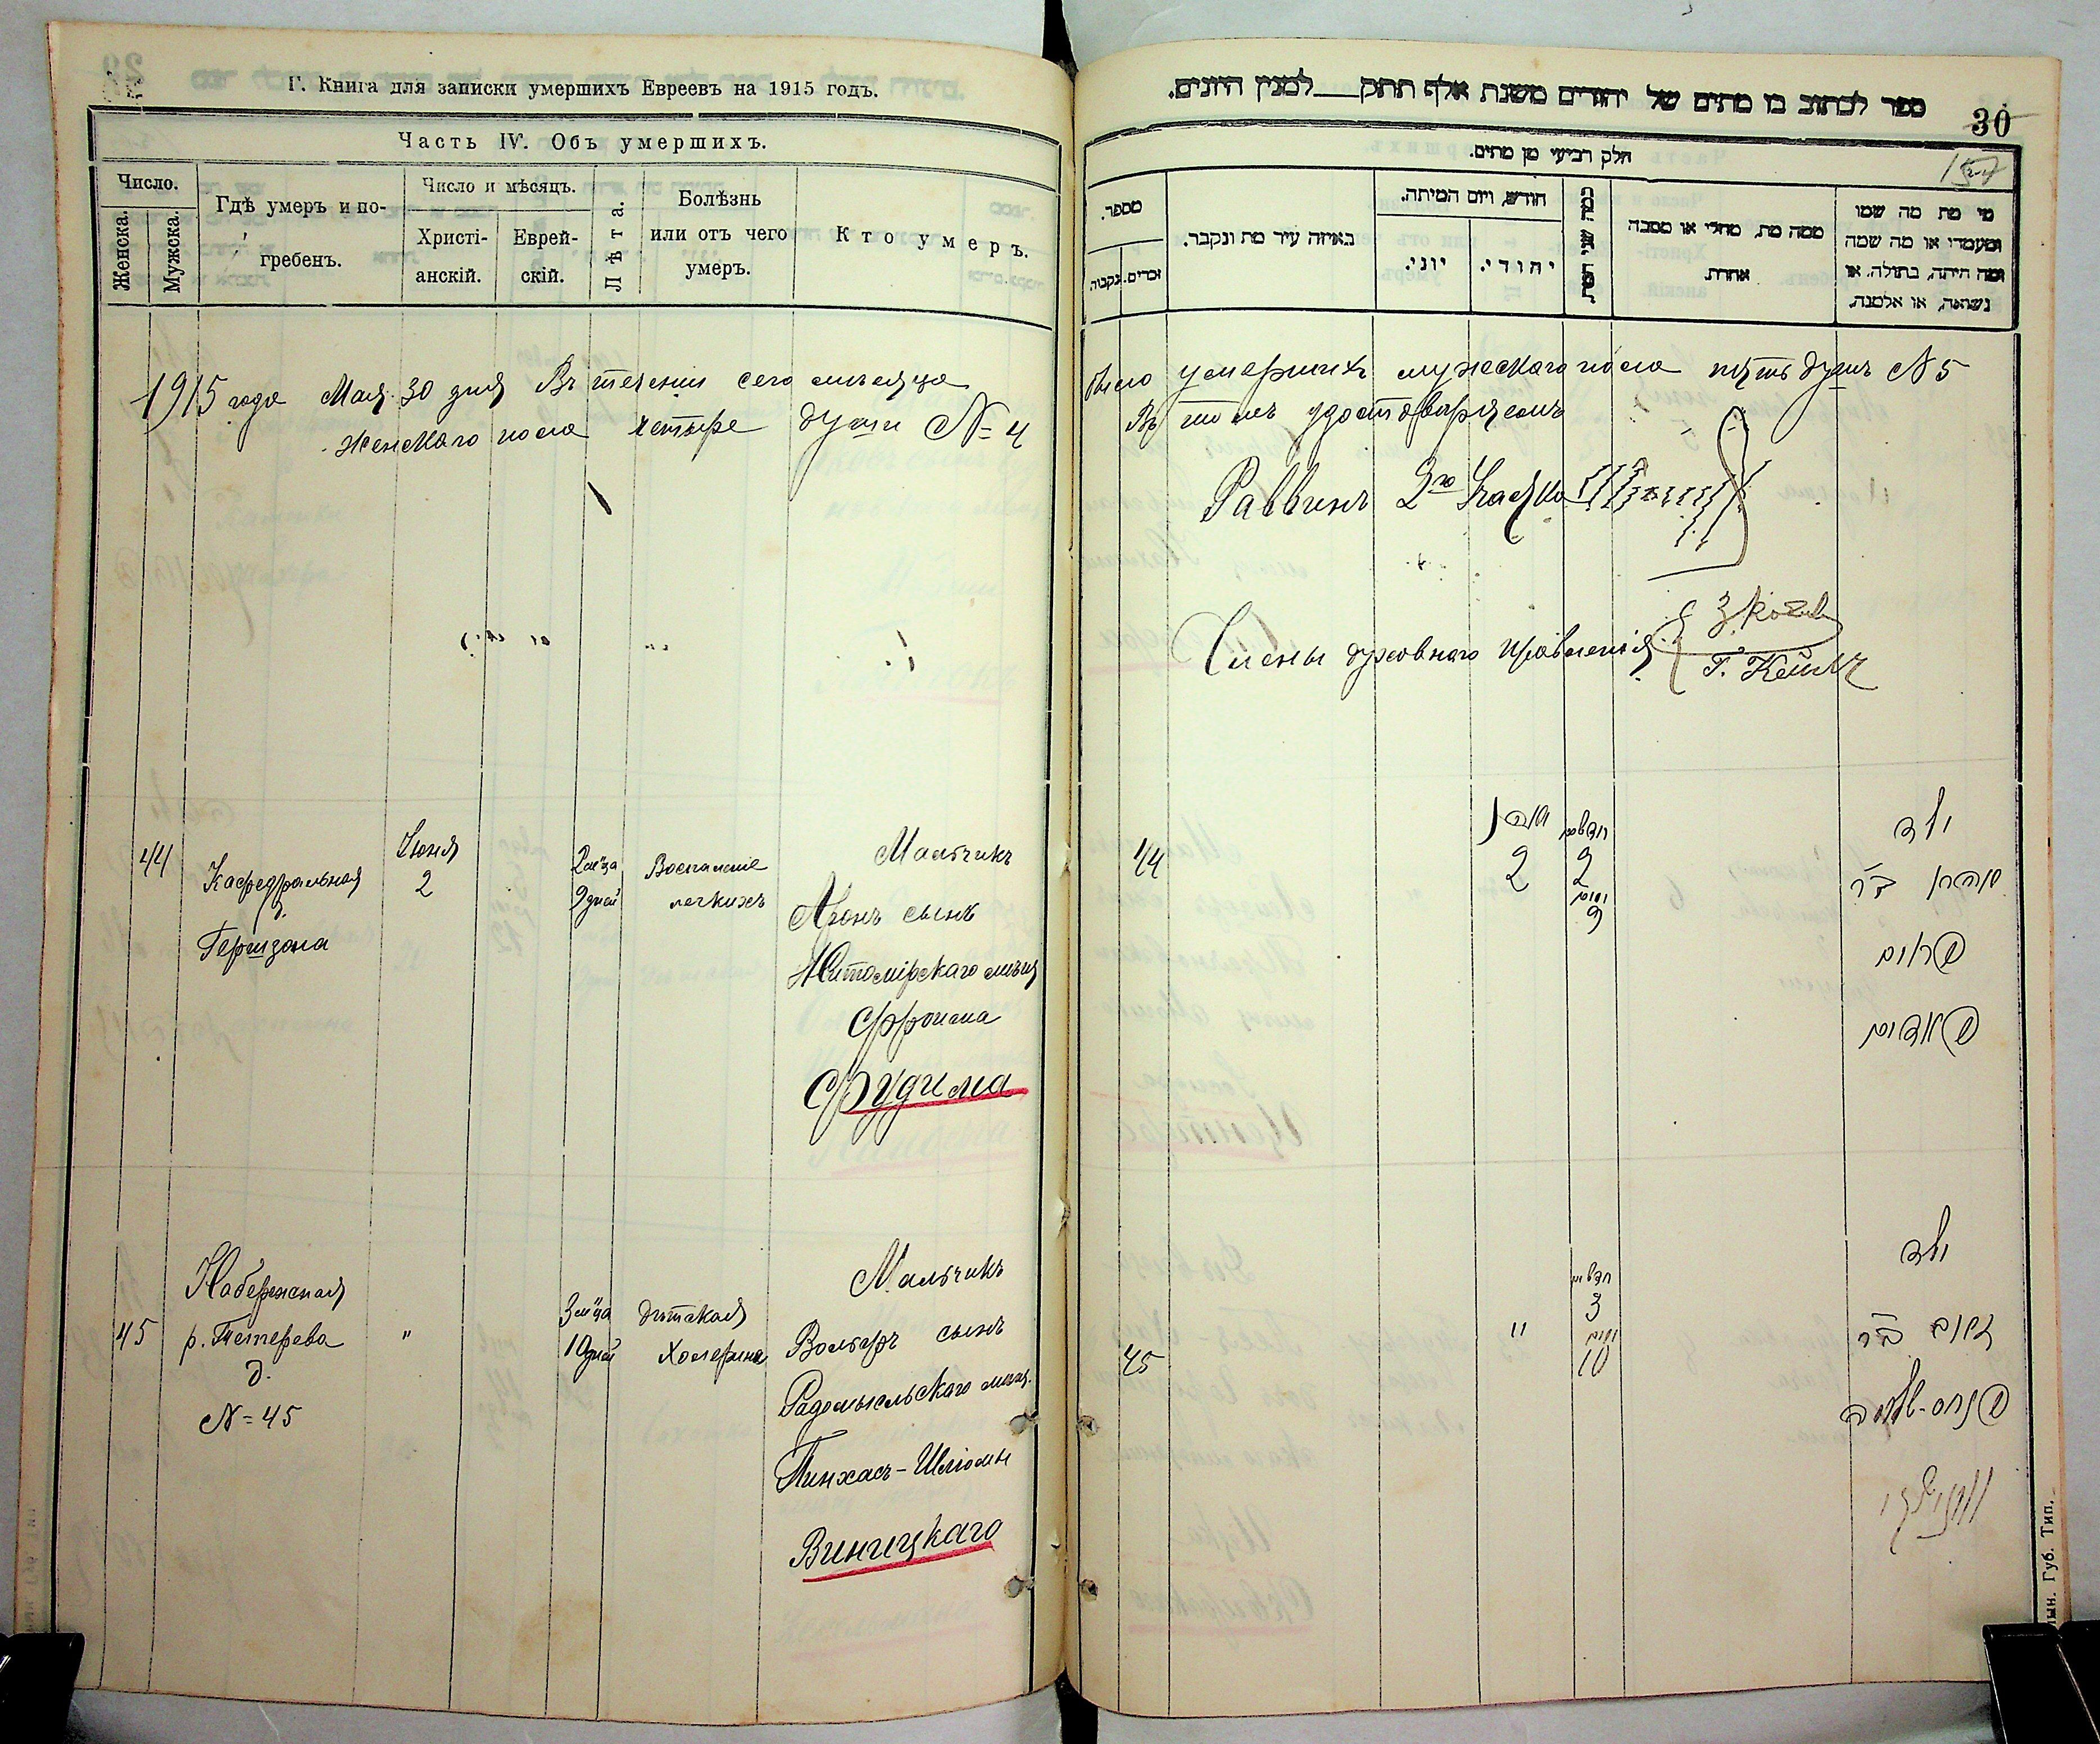 Г. Книга для записки умершихъ Евреевъ на 1915 годъ.
Часть IV. Объ умершихъ.
Число.
Женска.
Мужска.
Гдѣ умеръ и по-
гребенъ.
Число и мѣсяцъ.
Христі-
анскій.
Еврей-
скій.
Лѣта.
Болѣзнь
или отъ чего
умеръ.
Кто умеръ.
1915 года Мая 30 дня Въ теченіи сего мѣсяца
женскаго пола четыре души № 4
44
Кафедральная
д.
Гершзона
Іюня
2
2 м-ца
9 дней
Воспаленіе
легкихъ
Мальчикъ
Аронъ сынъ
Житомірскаго мѣщ
Фроима
Фудима
45
Набережная
р. Тетерева
д.
№ 45
"
3 м-ца
10 дней
Дѣтская
Холерина
Мальчикъ
Вольфъ сынъ
Радомысльскаго мѣщ.
Пинхасъ-Шлiомы
Виницкаго
ספר לכתוב בו מתים של יהודים משנת אלף תתק למנין היונים.
30
חלק רביעי מן מתים.
מספר.
זכרים.
נקבות
באיזה עיר מת ונקבר.
חודש, ויום המיתה.
יוני.
יהודי.
כמה שני המת.
ממה מת, מחלי או מסבה
אחרת.
מי מת מה שמו
ומעמדו או מה שמה
ומה היתה, בתולה, או
נשואה, או אלמנה.
было умершихъ мужескаго пола пять душъ № 5
Въ томъ удостовѣряемъ
Раввинъ 2го Участка
Члены духовнаго правленія
44
2
2
ימים
9
ילד
אהרן ב״ר
פרוים
פודים
45
"
3
ימים
10
ילד
זאב ב״ר
פנחס-שלמה
וויניצקי
лын. Губ. Тип.